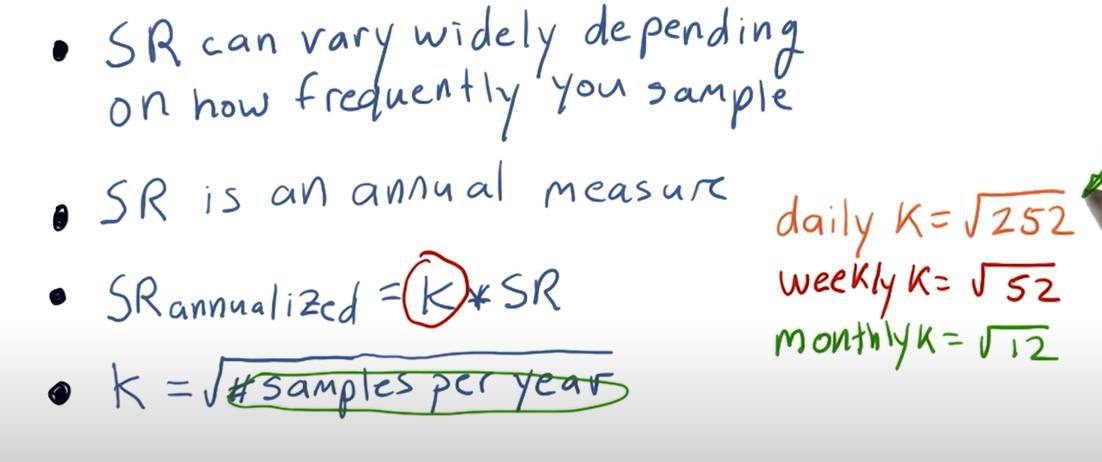 • SR can vary widely depending
on how frequently you sample
• SR is an annual measure
• SRannualized = K * SR
• K = √#samples per year
daily K = √252
weekly K = √52
monthly K = √12